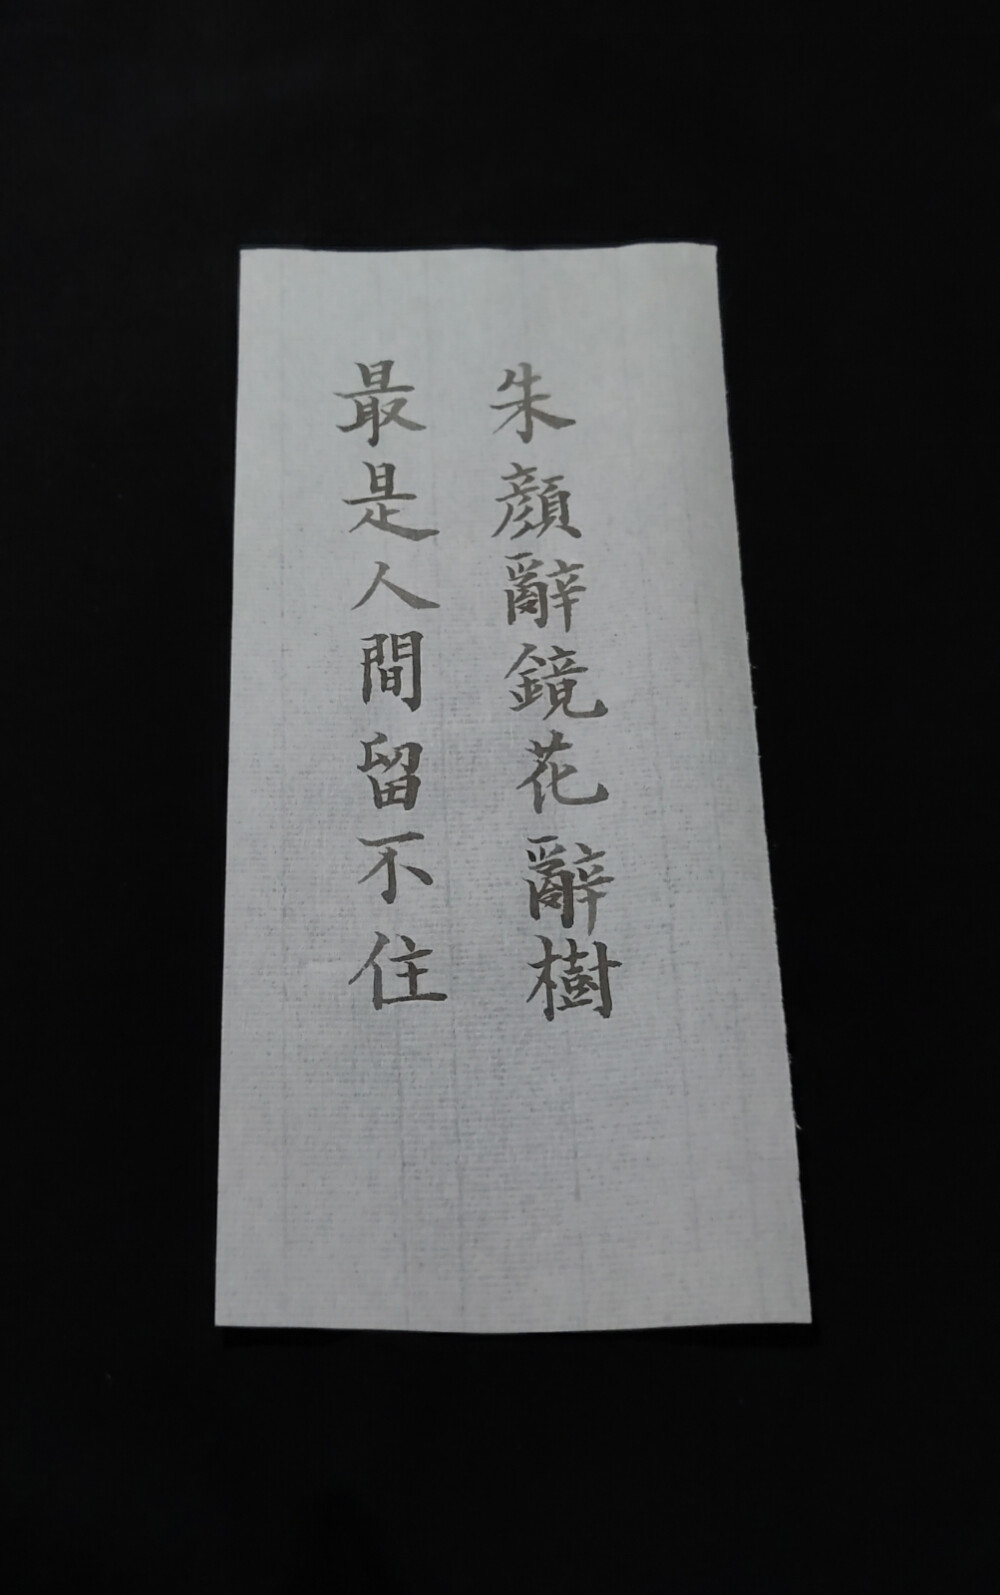 朱顔辭鏡花辭樹
最是人間留不住